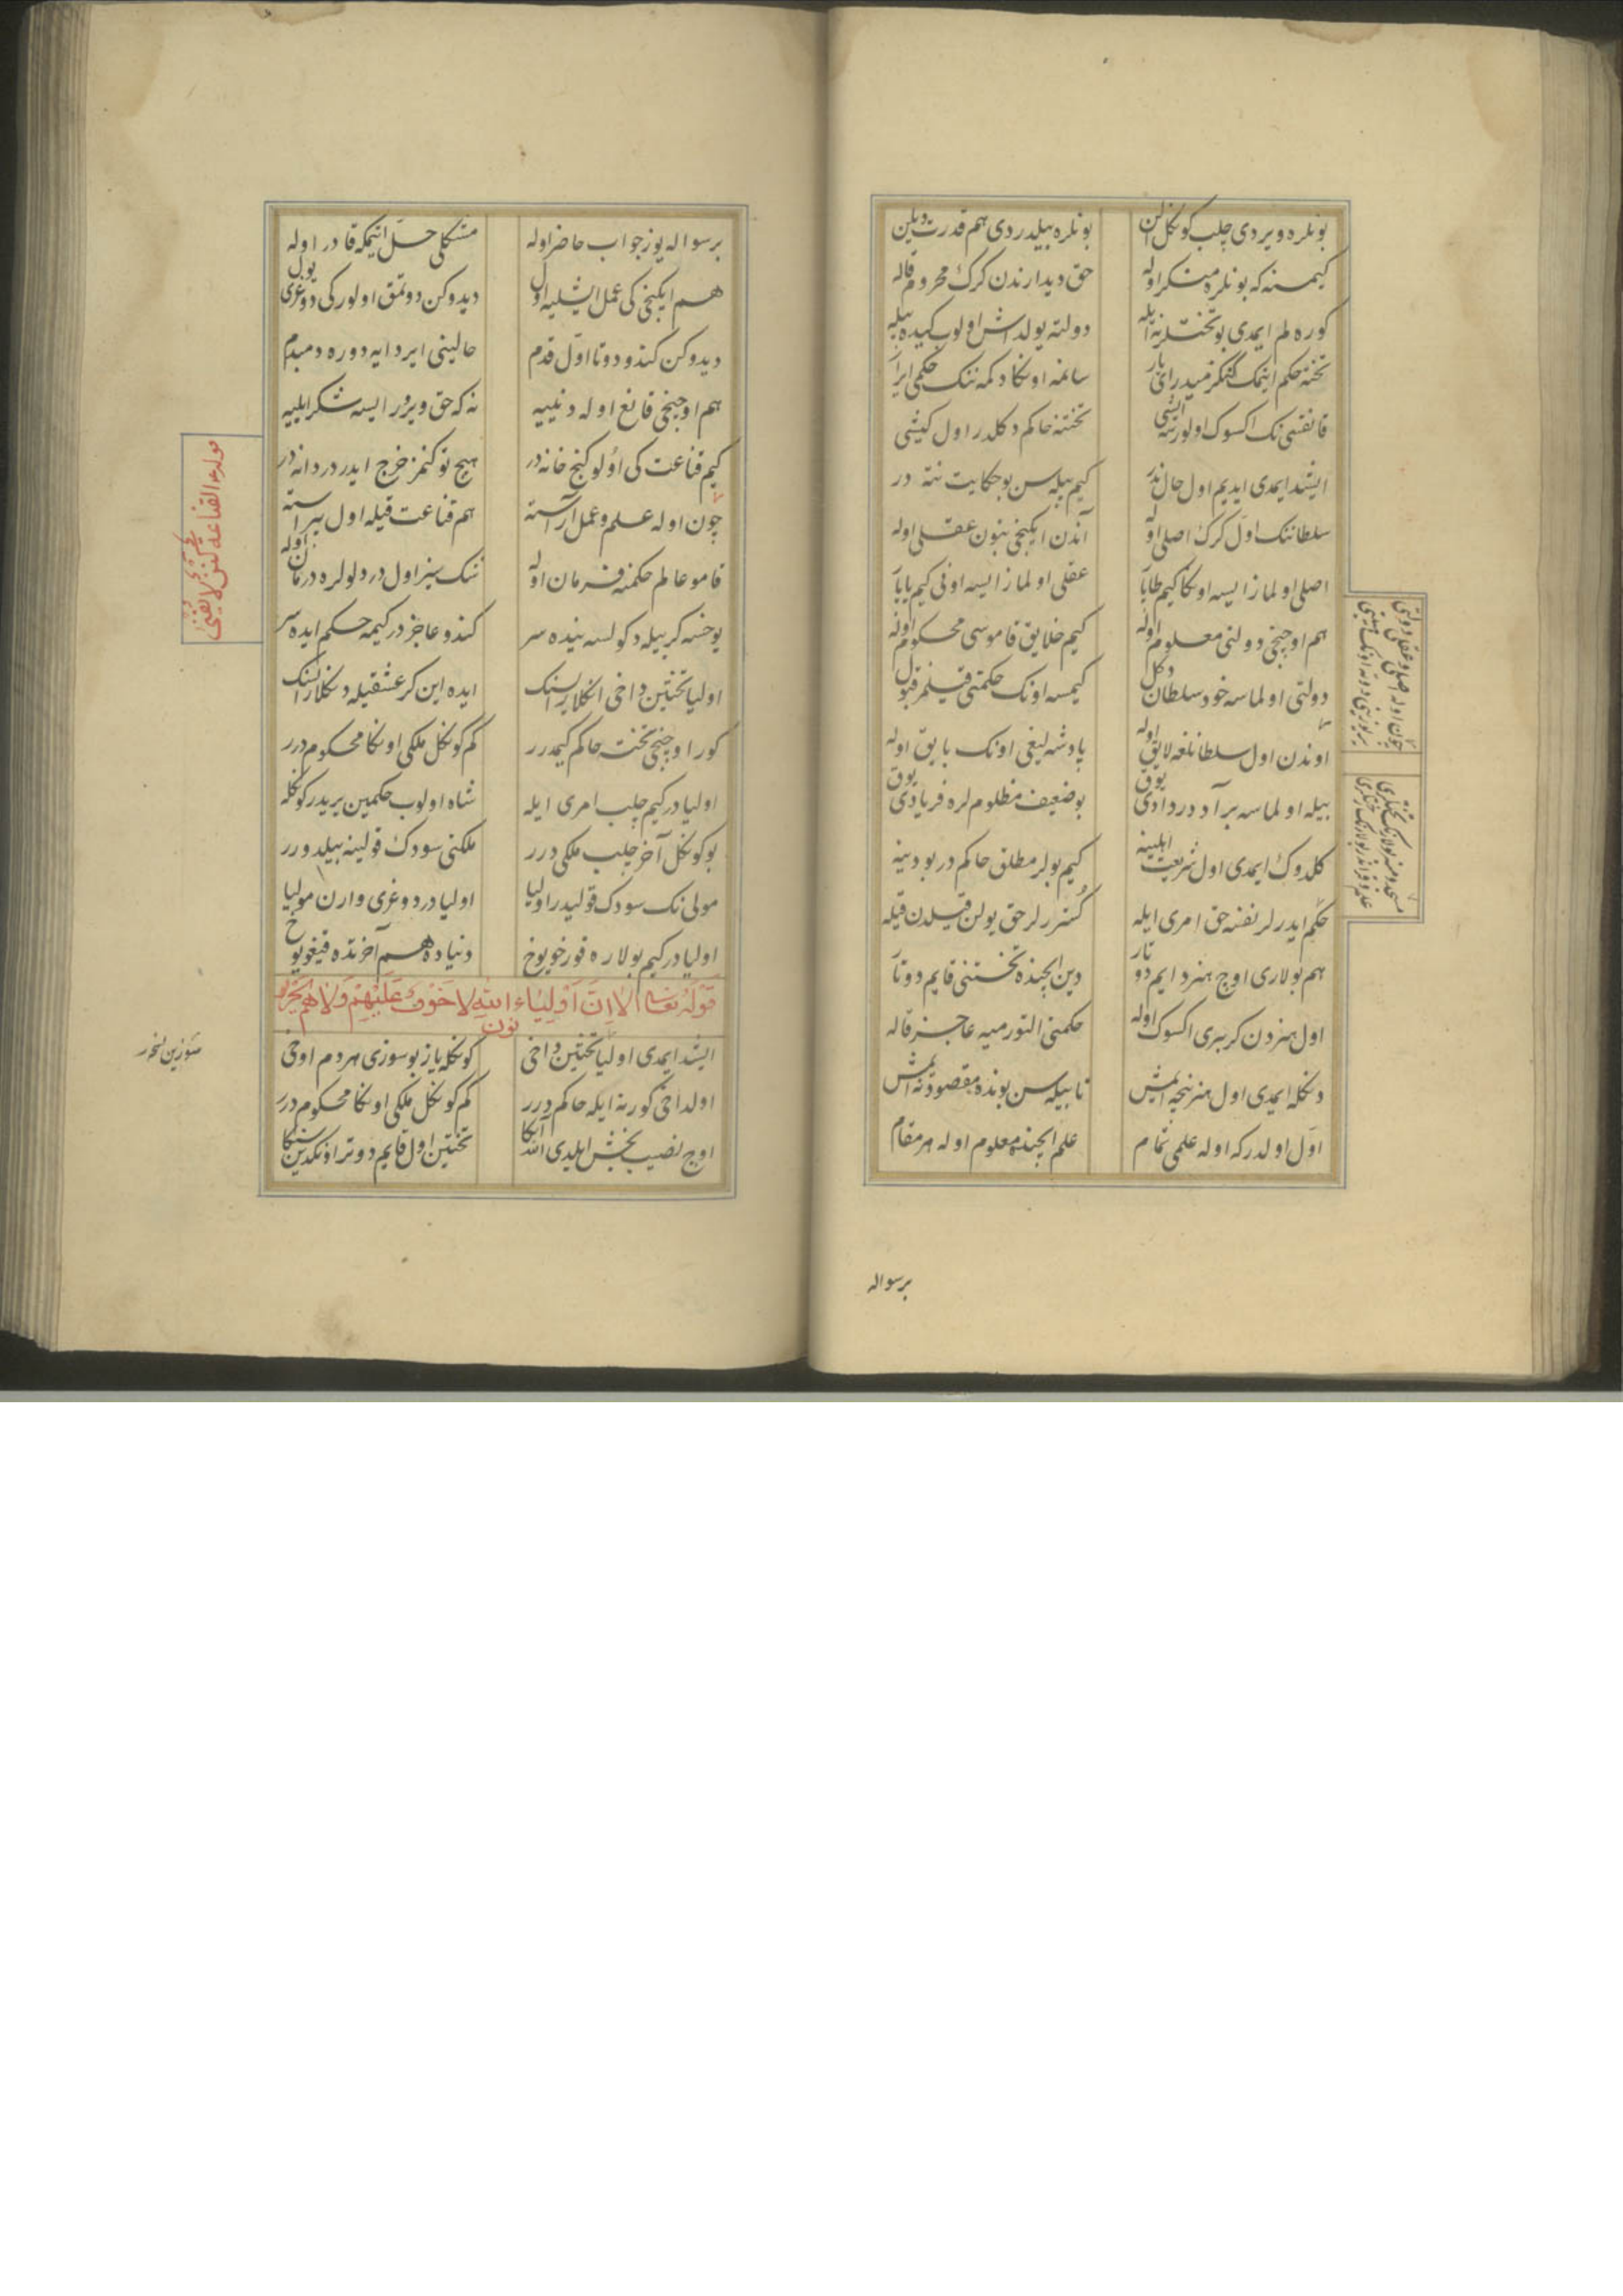 بونلره ویردی چلب کوکل الن
بونلره بیلدردی هم قدرت دیلین
کیمسنه که بونلره منکر اوله
حق دیدارندن کرک محروم قاله
کوره لم ایمدی بو تختلر نه ایله
دولته یولداش اولوب کیده بیله
تخته حکم ایتمک
سانمه اونکا دکمه ننک حکمی ایرا
قانقسی نک اکسوک اولورسه ایشی
تختنه حاکم دکلدر اول کیشی
ایشد ایمدی ایدیم اول حال ندر
کیم بیله سن بو حکایت نته در
سلطاننک اول کرک اصلی اوله
آندن ایکنجی بتون عقلی اوله
اصلی اولماز ایسه اونکا کیم طاپا
عقلی اولماز ایسه اونی کیم یاپا
هم اوچنجی دولتی معلوم اوله
کیم خلایق قاموسی محکوم اوله
دولتی اولماسه خود سلطان دکل
کیمسه اونک حکمتی قیلمز قبول
اوندن اول سلطانلغه لایق اوله
پادشه لیغی اونک بایق اوله
بیله اولماسه بر آد در دادی یوق
بو ضعیف مظلوملره فریادی یوق
کلدوک ایمدی اول شریعت اهلینه
کیم بولر مطلق حاکم در بو دینه
حکم ایدرلر نفسنه حق امری ایله
کستررلر حق یولن قیلدن قیله
هم بولاری اوچ هنر دایم دوتار
دین ایچنده تختنی قایم دوتار
اول هنردن کر بری اکسوک اوله
حکمنی التورمیه عاجز قاله
دنکله ایمدی اول هنر نیجه ایمش
تا بیله سن بونده مقصود نه ایمش
اول اولدر که اوله علمی تمام
علم ایچنده معلوم اوله هر مقام
چون اوله اصلی و عقلی دولتی
برسواله
برسواله یوز جواب حاضر اوله
مشکلی حل ایتمکه قادر اوله
هم ایکنجی کی عمل ایشلیه اول
دیدوکن دوتمق اولور کی دوغری یول
دیدوکن کندو دوتا اول قدم
حالینی ایردایه دوره دمبدم
هم اوچنجی قانع اوله دنییه
نه که حق ویرور ایسه شکر ایلیه
کیم قناعت کی اولو کنج خانه در
هیچ توکنمز خرج ایدر دردانه در
چون اوله علم و عمل آراسته
هم قناعت قیله اول پیراسته
قامو عالم حکمنه فرمان اوله
ننک سیز اول دردلولره درمان اوله
یوخسه کر بیله دکولسه بنده سر
کندو عاجز در کیمه حکم ایده سر
اولیا تختین داخی انکلارسنک
ایده این کر عشقیله دنکلارسنک
کور اوچنجی تخت حاکم کیمدرر
کم کوکل ملکی اونکا محکوم درر
اولیا در کیم چلب امری ایله
شاه اولوب حکمین یریدر کوکله
بو کوکل آخر چلب ملکی درر
ملکنی سودک قولینه بیلدورر
مولی نک سودک قولیدر اولیا
اولیا در دوغری وارن مولیا
اولیا در کیم بولاره قورخو یوخ
دنیاده هم آخرتده قیغو یوخ
قوله تعالی الا ان اولیاء الله لا خوف علیهم ولا هم یحزنون
ایشد ایمدی اولیا تختین داخی
کوکله یاز بو سوزی هردم اوخی
اولداخی کور نه ایله حاکم درر
کم کوکل ملکی اونکا محکوم درر
اوچ نصیب بخش ایلدی الله آنکا
تختین اول قایم دوتر اونکدین سنکا
القناعة کنز لا یفنی